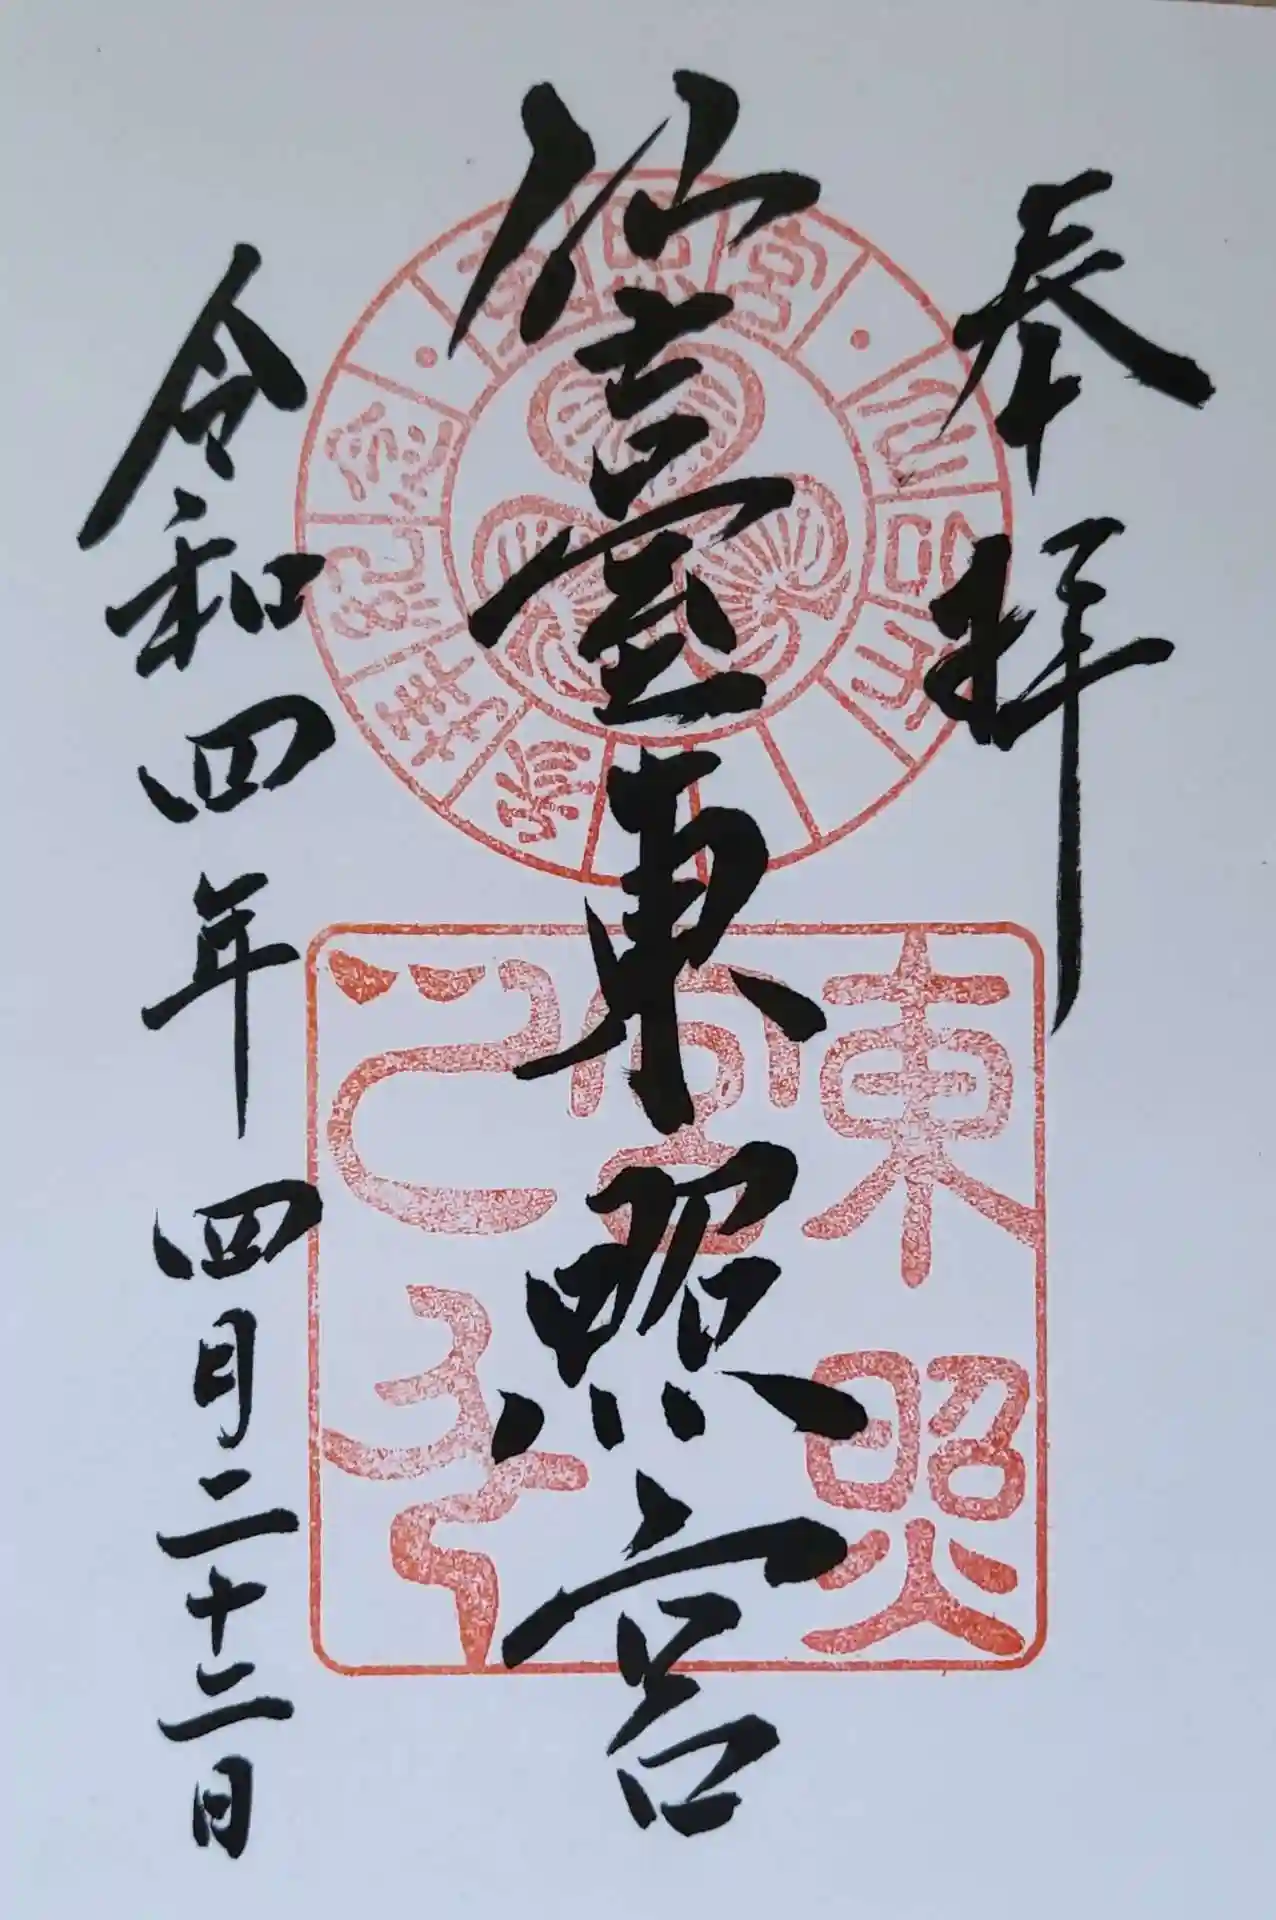 奉拝
仙臺東照宮
令和四年四月二十二日
東照
宮